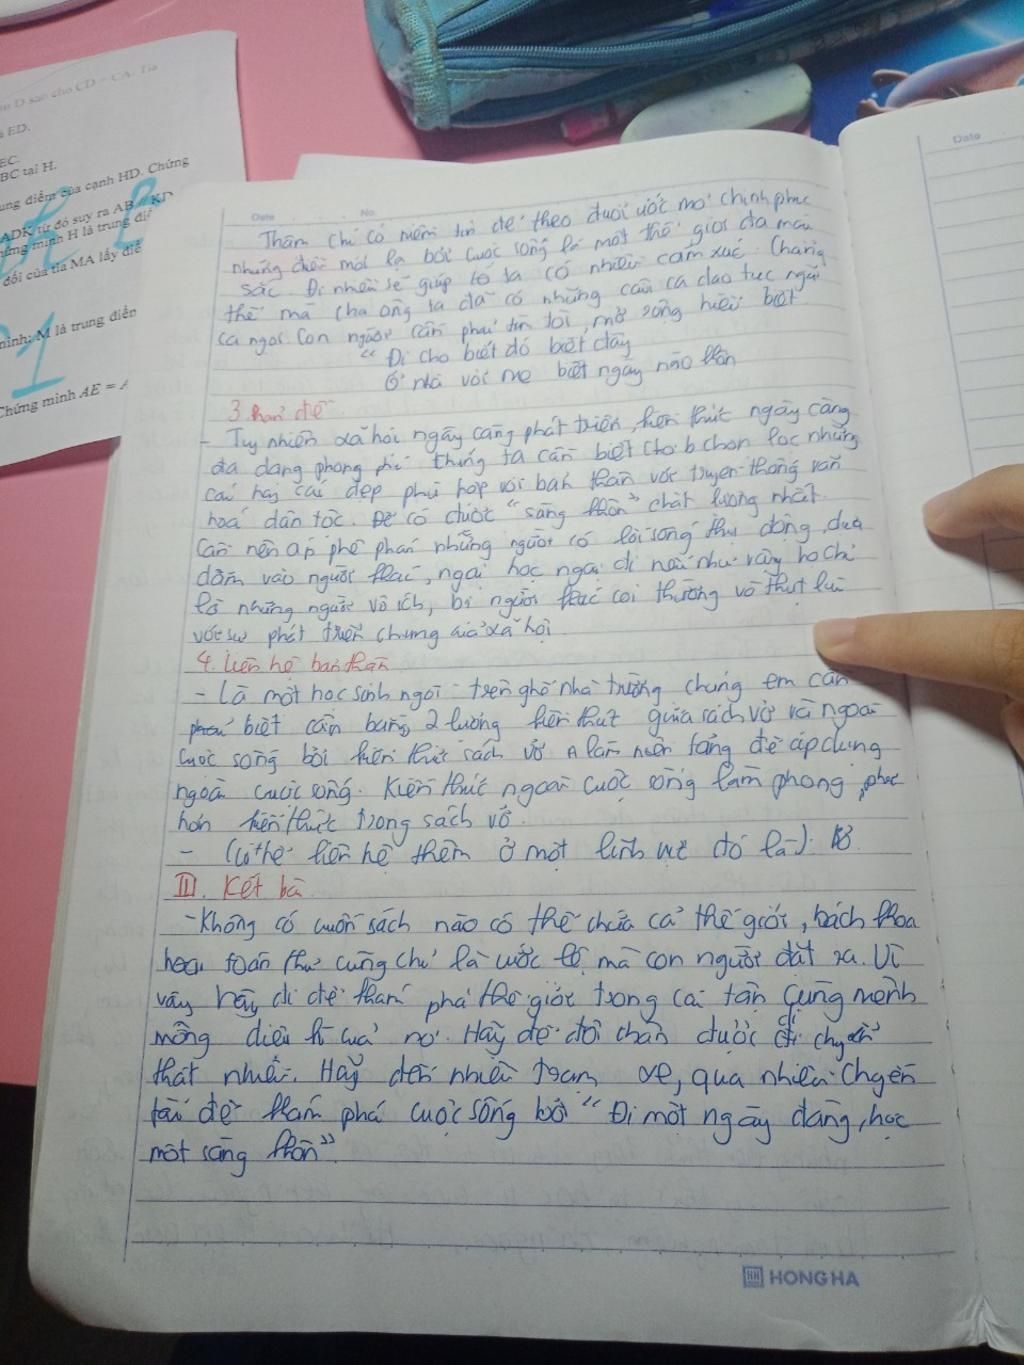 m D sao cho CD = CA. Tia
ED.
EC.
BC tại H.
ung điểm của cạnh HD. Chứng
ADK từ đó suy ra AB // KD
minh H là trung điể
đối của tia MA lấy điể
minh: M là trung điểm
Chứng minh AE = A
2
1
Date
Date No.
Thậm chí có niềm tin để theo đuổi ước mơ chinh phục
những điều mới lạ bởi cuộc sống là một thế giới đa màu
sắc. Đi nhiều sẽ giúp ta có nhiều cảm xúc. Chẳng
thế mà cha ông ta đã có những câu ca dao tục ngữ
ca ngợi con người cần phải tìm tòi, mở rộng hiểu biết
" Đi cho biết đó biết đây
Ở nhà với mẹ biết ngày nào khôn
3. phản đề
- Tuy nhiên xã hội ngày càng phát triển, kiến thức ngày càng
đa dạng phong phú chúng ta cần biết chọn lọc những
cái hay cái đẹp phù hợp với bản thân với truyền thống văn
hoá dân tộc. Để có được "sàng khôn" chất lượng nhất.
Cần lên án phê phán những người có lối sống thụ động, dựa
dẫm vào người khác, ngại học ngại đi nếu như vậy họ chỉ
là những người vô ích, bị người khác coi thường và thụt lùi
với sự phát triển chung của xã hội.
4. Liên hệ bản thân
- Là một học sinh ngồi trên ghế nhà trường chúng em cần
phải biết cân bằng 2 lượng kiến thức giữa sách vở và ngoài
cuộc sống bởi kiến thức sách vở làm nền tảng để áp dụng
ngoài cuộc sống. Kiến thức ngoài cuộc sống làm phong phú
hơn kiến thức trong sách vở.
- (Có thể liên hệ thêm ở một lĩnh vực đó là):
III. Kết bài
- Không có cuốn sách nào có thể chứa cả thế giới, bách khoa
toàn thư cũng chỉ là ước lệ mà con người đặt ra. Vì
vậy hãy đi để khám phá thế giới trong cái tận cùng mênh
mông diệu kì của nó. Hãy để đôi chân được đi chuyển
thật nhiều. Hãy đến nhiều trạm xe, qua nhiều chuyến
tàu để khám phá cuộc sống bởi "Đi một ngày đàng, học
một sàng khôn".
HH HONG HA